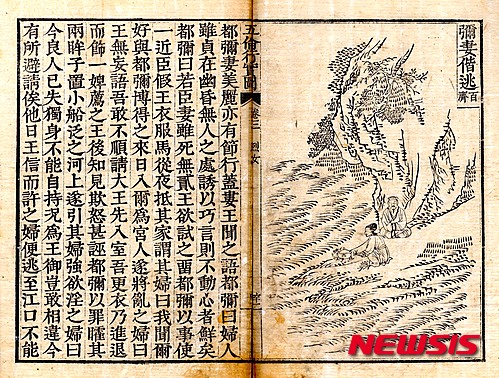 彌妻偕逃
百濟
五倫行實圖
卷三 烈女
都彌妻美麗亦有節行蓋婁王聞之語都彌曰婦人
雖貞在幽昏無人之處誘以巧言則不動心者鮮矣
都彌曰若臣妻雖死無貳王欲試之留都彌以事使
一近臣假王衣服馬從夜抵其家謂其婦曰我聞爾
好與都彌博得之來日入爾爲宮人遂將亂之婦曰
王無妄語吾敢不順請大王先入室吾更衣乃進退
而飾一婢薦之王後知見欺怒甚誣都彌以罪矐其
兩眸子置小船泛之河上遂引其婦強欲淫之婦曰
今良人已失獨身不能自持況爲王御豈敢相違今
有所避請俟他日王信而許之婦便逃至江口不能
NEWSIS